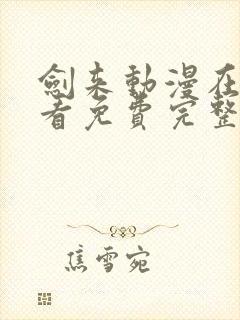 劍来動漫在
看免費完整
焦雪宛